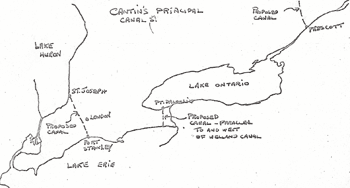 CANTIN'S PRINCIPAL
CANALS
PROPOSED
CANAL
PRESCOTT
LAKE
HURON
LAKE ONTARIO
ST. JOSEPH
LONDON
PROPOSED
CANAL
PORT
STANLEY
PT. DALHOUSIE
PROPOSED
CANAL - PARALLEL
TO AND WEST
OF WELLAND CANAL
LAKE ERIE